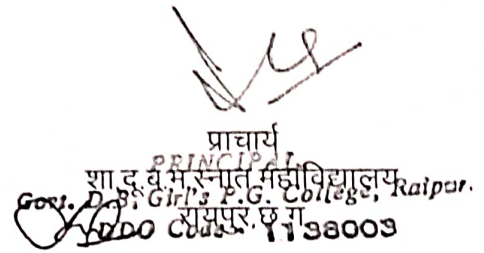 प्राचार्य
PRINCIPAL
शा.दू.ब.म.स्नात.महाविद्यालय
Govt. D.B. Girl's P.G. College, Raipur.
रायपुर छ.ग.
DDO Code - 1138003